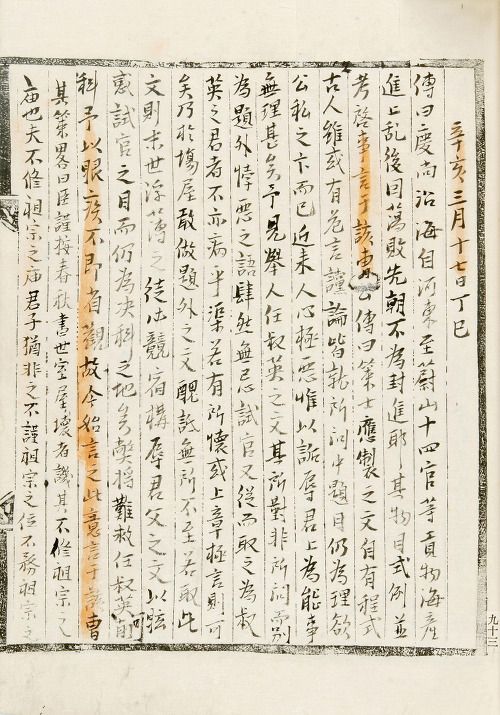 辛亥三月十七日丁巳
傳曰慶尚沿海自河東至蔚山十四官等貢物海産
進上乱後因蕩敗先朝不為封進其物目式例並
考啓事言于該曹傳曰策士應製之文自有程式
古人雖或有危言讜論皆就所詢中題目仍為理欲
公私之卞而已近来人心極惡惟以詬辱君上為能事
無理甚矣予見舉人任叔英之文其所對非所問而別
為題外悖惡之語肆然無忌試官又從而取之為叔
英之君者不亦病乎渠若有所懷或上章極言則可
矣乃於場屋敢做題外之文醜詆無所不至若取此
文則末世浮薄之徒必競宿構辱君父之文以眩
惑試官之目而仍為决科之地矣弊将難救任叔英削
科予以眼疾不即省觀故今始言之此意言于該曹
其策畧曰臣謹按春秋書世室屋壞者譏其不修祖宗之
庙也夫不修祖宗之庙君子猶非之不謹祖宗之位不務祖宗之
九十三